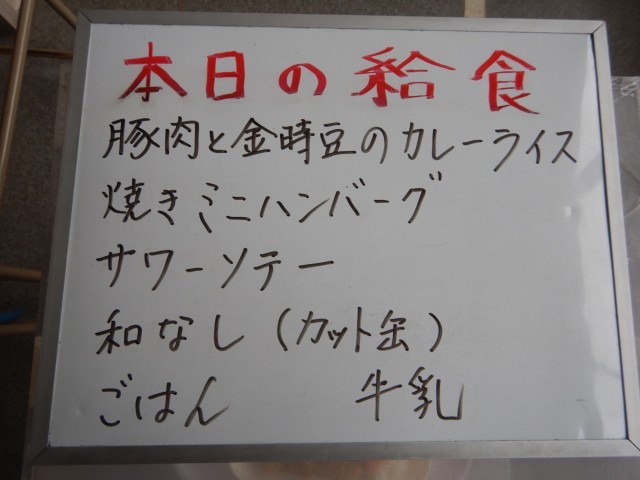 本日の給食
豚肉と金時豆のカレーライス
焼きミニハンバーグ
サワーソテー
和なし(カット缶)
ごはん 牛乳